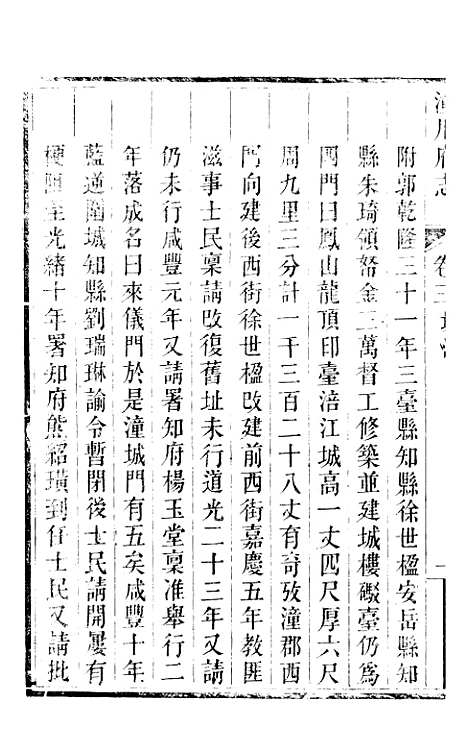 潼川府志 卷三 城池 一
附郭乾隆三十一年三臺縣知縣徐世楹安岳縣知
縣朱琦領帑金三萬督工修築並建城樓礮臺仍爲
四門曰鳳山龍頂印臺涪江城高一丈四尺厚六尺
周九里三分計一千三百二十八丈有奇攷潼郡西
門向建後西街徐世楹改建前西街嘉慶五年教匪
滋事士民稟請改復舊址未行道光二十三年又請
仍未行咸豐元年又請署知府楊玉堂稟准舉行二
年落成名曰來儀門於是潼城門有五矣咸豐十年
藍逆圍城知縣劉瑞琳諭令暫閉後士民請開屢有
梗阻至光緒十年署知府熊紹璜到任士民又請批